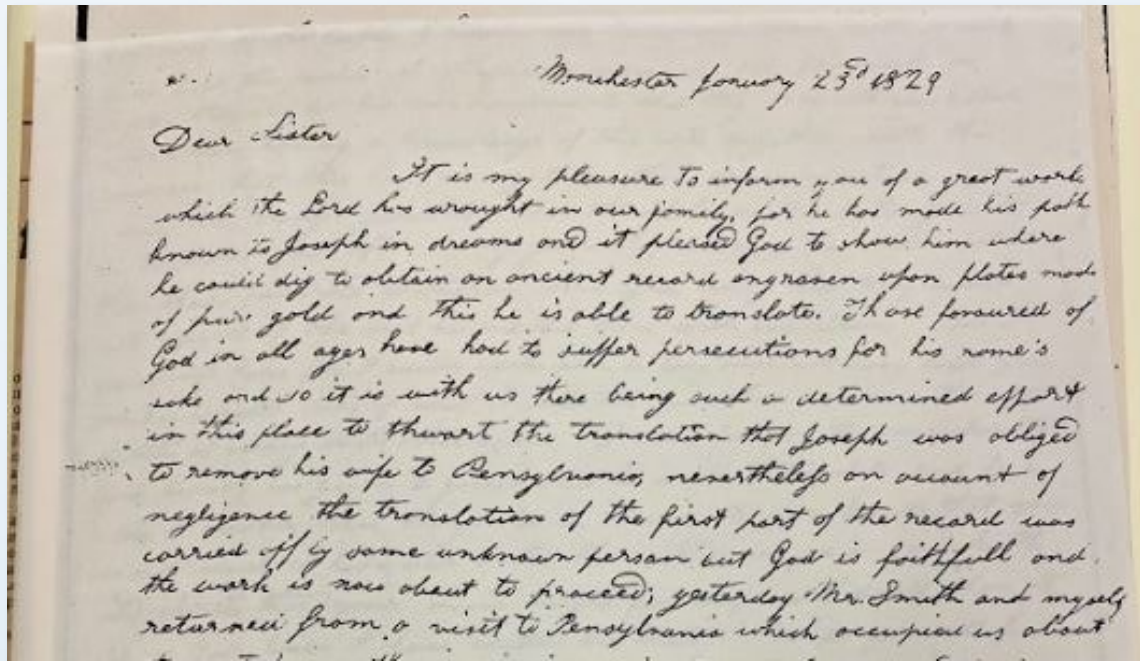 Manchester January 23d 1829
Dear Sister
It is my pleasure to inform you of a great work
which the Lord has wrought in our family, for he has made his path
known to Joseph in dreams and it pleased God to show him where
he could dig to obtain an ancient record engraven upon plates made
of pure gold and this he is able to translate. Those favoured of
God in all ages have had to suffer persecutions for his name's
sake and so it is with us there being such a determined effort
in this place to thwart the translation that Joseph was obliged
to remove his wife to Pensylvania, nevertheless on account of
negligence the translation of the first part of the record was
carried off by some unknown person but God is faithfull and
the work is now about to proceed; yesterday Mr. Smith and myself
returned from a visit to Pensylvania which occupied us about